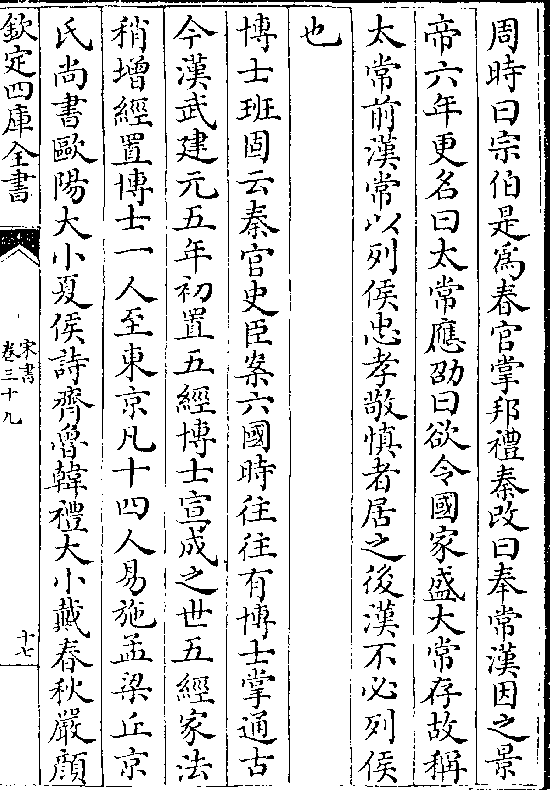 周時曰宗伯是為春官掌邦禮秦改曰奉常漢因之景
帝六年更名曰太常應劭曰欲令國家盛大常存故稱
太常前漢常以列侯忠孝敬慎者居之後漢不必列侯
也
博士班固云秦官史臣案六國時往往有博士掌通古
今漢武建元五年初置五經博士宣成之世五經家法
稍增經置博士一人至東京凡十四人易施孟梁丘京
氏尚書歐陽大小夏侯詩齊魯韓禮大小戴春秋嚴顔
欽定四庫全書
宋書
卷三十九
十七